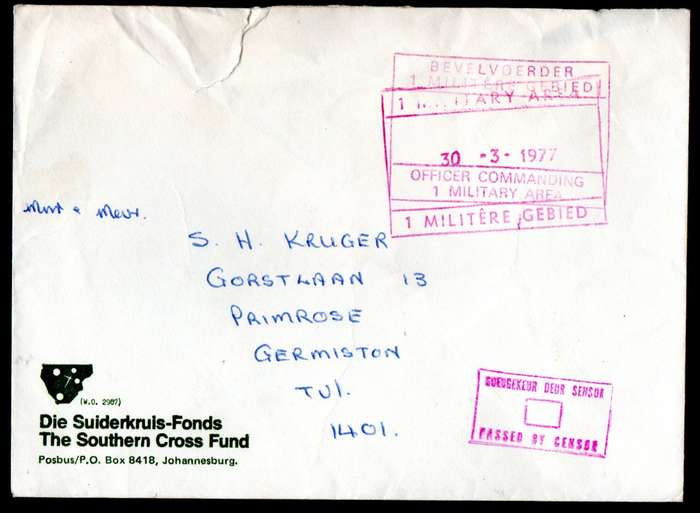 BEVELVOERDER
1 MILITÊRE GEBIED
1 MILITARY AREA
30 -3- 1977
OFFICER COMMANDING
1 MILITARY AREA
1 MILITÊRE GEBIED
Mnr & Mevr.
S. H. KRUGER
GORSTLAAN 13
PRIMROSE
GERMISTON
TVL.
1401.
(W.O. 2987)
Die Suiderkruis-Fonds
The Southern Cross Fund
Posbus/P.O. Box 8418, Johannesburg.
GOEDGEKEUR DEUR SENSOR
PASSED BY CENSOR